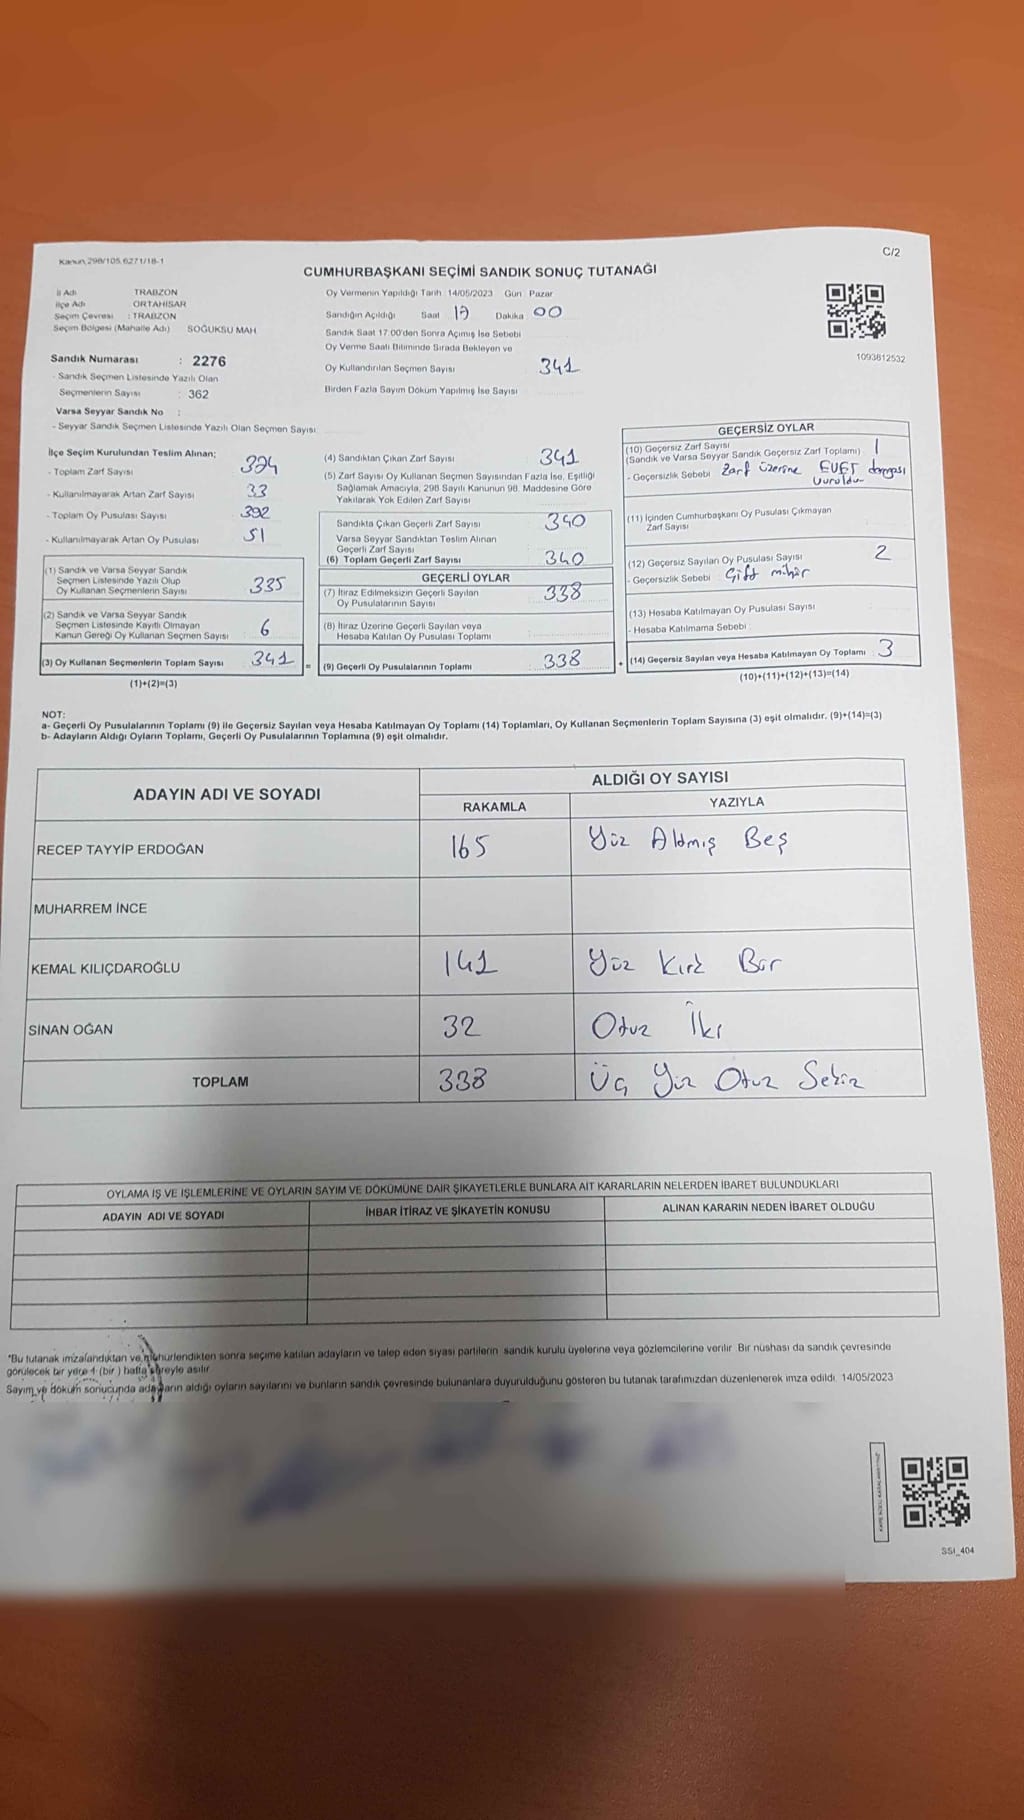 Kanun, 298/105,6271/18-1
C/2
CUMHURBAŞKANI SEÇİMİ SANDIK SONUÇ TUTANAĞI
İl Adı TRABZON
İlçe Adı ORTAHİSAR
Seçim Çevresi : TRABZON
Seçim Bölgesi (Mahalle Adı) SOĞUKSU MAH
Sandık Numarası : 2276
- Sandık Seçmen Listesinde Yazılı Olan
Seçmenlerin Sayısı : 362
Varsa Seyyar Sandık No :
- Seyyar Sandık Seçmen Listesinde Yazılı Olan Seçmen Sayısı:
Oy Vermenin Yapıldığı Tarih :14/05/2023 Gün : Pazar
Sandığın Açıldığı Saat 17 Dakika 00
Sandık Saat 17:00'den Sonra Açımış İse Sebebi
Oy Verme Saati Bitiminde Sırada Bekleyen ve
Oy Kullandırılan Seçmen Sayısı 341
Birden Fazla Sayım Döküm Yapılmış İse Sayısı
1093812532
İlçe Seçim Kurulundan Teslim Alınan;
- Toplam Zarf Sayısı 374
- Kullanılmayarak Artan Zarf Sayısı 33
- Toplam Oy Pusulası Sayısı 392
- Kullanılmayarak Artan Oy Pusulası 51
(1) Sandık ve Varsa Seyyar Sandık
Seçmen Listesinde Yazılı Olup
Oy Kullanan Seçmenlerin Sayısı 335
(2) Sandık ve Varsa Seyyar Sandık
Seçmen Listesinde Kayıtlı Olmayan
Kanun Gereği Oy Kullanan Seçmen Sayısı 6
(3) Oy Kullanan Seçmenlerin Toplam Sayısı 341 =
(1)+(2)=(3)
(4) Sandıktan Çıkan Zarf Sayısı 341
(5) Zarf Sayısı Oy Kullanan Seçmen Sayısından Fazla İse, Eşitliği
Sağlamak Amacıyla, 298 Sayılı Kanunun 98. Maddesine Göre
Yakılarak Yok Edilen Zarf Sayısı
Sandıkta Çıkan Geçerli Zarf Sayısı 340
Varsa Seyyar Sandıktan Teslim Alınan
Geçerli Zarf Sayısı
(6) Toplam Geçerli Zarf Sayısı 340
GEÇERLİ OYLAR
(7) İtiraz Edilmeksizin Geçerli Sayılan
Oy Pusulalarının Sayısı 338
(8) İtiraz Üzerine Geçerli Sayılan veya
Hesaba Katılan Oy Pusulası Toplamı
(9) Geçerli Oy Pusulalarının Toplamı 338 +
GEÇERSİZ OYLAR
(10) Geçersiz Zarf Sayısı
(Sandık ve Varsa Seyyar Sandık Geçersiz Zarf Toplamı) 1
- Geçersizlik Sebebi Zarf üzerine EVET damgası
vuruldu
(11) İçinden Cumhurbaşkanı Oy Pusulası Çıkmayan
Zarf Sayısı
(12) Geçersiz Sayılan Oy Pusulası Sayısı 2
- Geçersizlik Sebebi Çift mühür
(13) Hesaba Katılmayan Oy Pusulası Sayısı
- Hesaba Katılmama Sebebi
(14) Geçersiz Sayılan veya Hesaba Katılmayan Oy Toplamı 3
(10)+(11)+(12)+(13)=(14)
NOT:
a- Geçerli Oy Pusulalarının Toplamı (9) ile Geçersiz Sayılan veya Hesaba Katılmayan Oy Toplamı (14) Toplamları, Oy Kullanan Seçmenlerin Toplam Sayısına (3) eşit olmalıdır. (9)+(14)=(3)
b- Adayların Aldığı Oyların Toplamı, Geçerli Oy Pusulalarının Toplamına (9) eşit olmalıdır.
ADAYIN ADI VE SOYADI ALDIĞI OY SAYISI
RAKAMLA YAZIYLA
RECEP TAYYİP ERDOĞAN 165 Yüz Altmış Beş
MUHARREM İNCE
KEMAL KILIÇDAROĞLU 141 Yüz Kırk Bir
SİNAN OĞAN 32 Otuz İki
TOPLAM 338 Üç Yüz Otuz Sekiz
OYLAMA İŞ VE İŞLEMLERİNE VE OYLARIN SAYIM VE DÖKÜMÜNE DAİR ŞİKAYETLERLE BUNLARA AİT KARARLARIN NELERDEN İBARET BULUNDUKLARI
ADAYIN ADI VE SOYADI İHBAR İTİRAZ VE ŞİKAYETİN KONUSU ALINAN KARARIN NEDEN İBARET OLDUĞU
*Bu tutanak imzalandıktan ve mühürlendikten sonra seçime katılan adayların ve talep eden siyasi partilerin sandık kurulu üyelerine veya gözlemcilerine verilir. Bir nüshası da sandık çevresinde
görülecek bir yere 1 (bir ) hafta süreyle asılır.
Sayım ve döküm sonucunda adayların aldığı oyların sayılarını ve bunların sandık çevresinde bulunanlara duyurulduğunu gösteren bu tutanak tarafımızdan düzenlenerek imza edildi. 14/05/2023
SSI_404